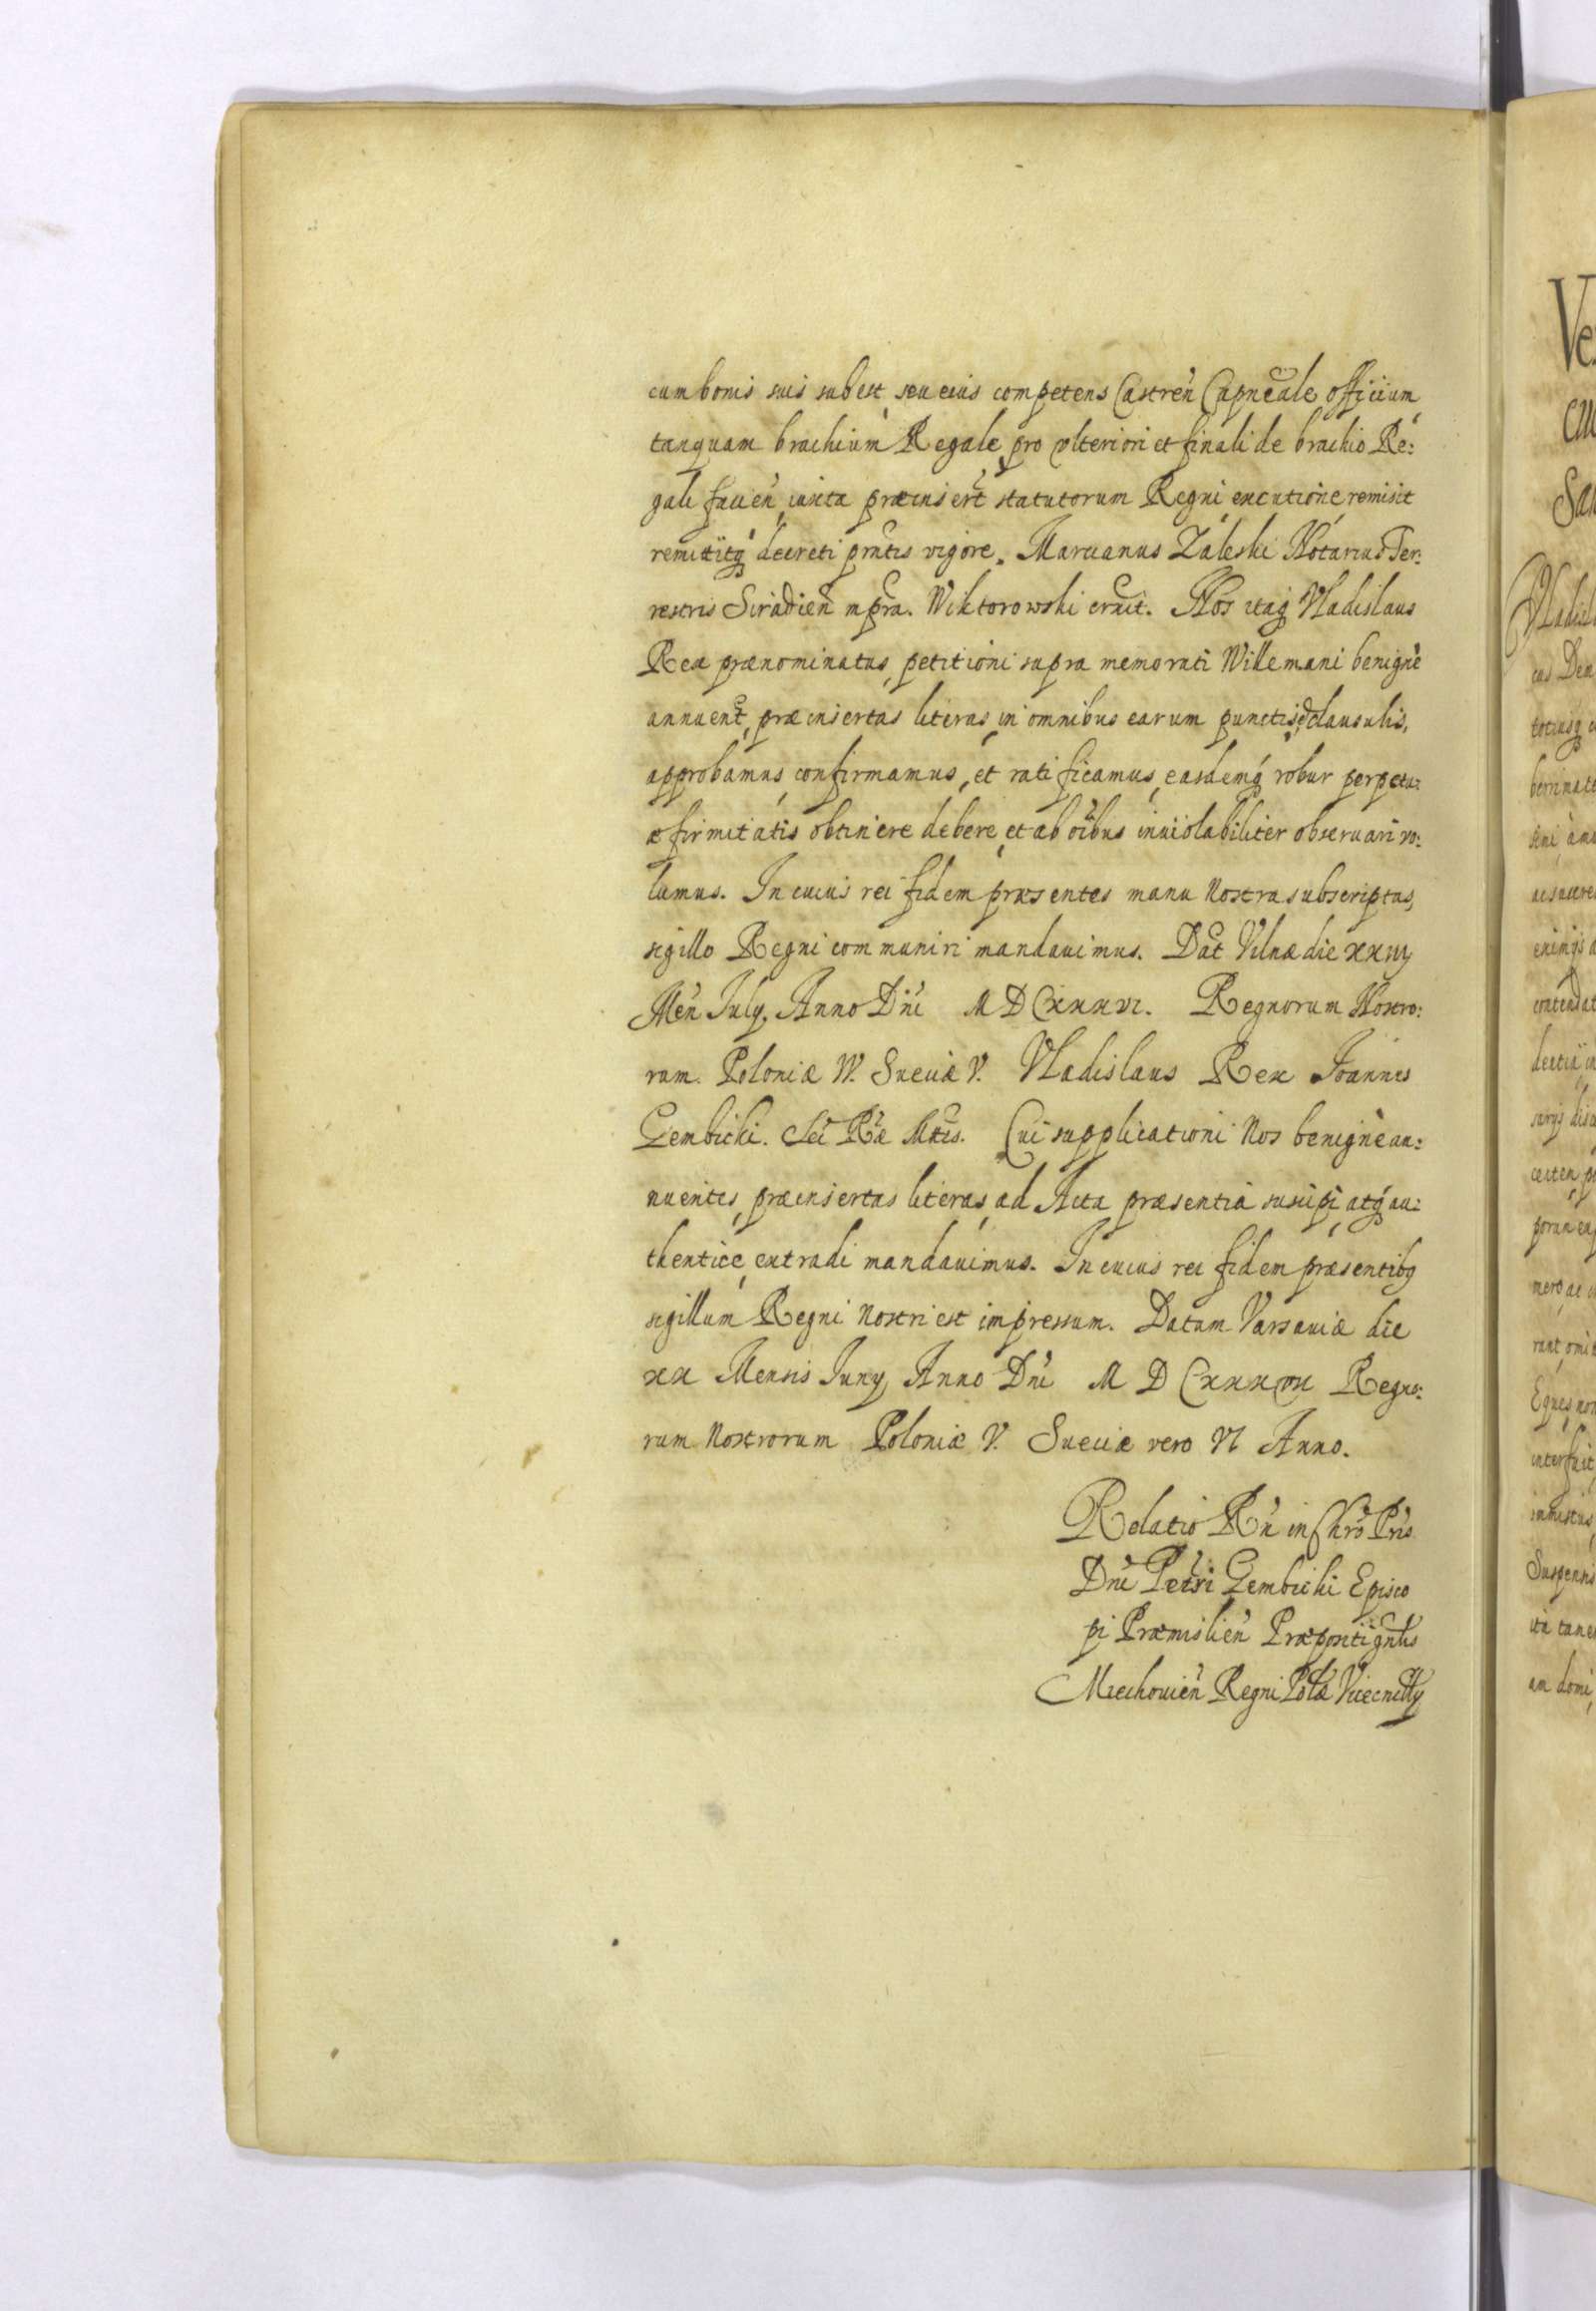 cum bonis suis subest, seu eius competens Castreñ Capneale officium
tanquam brachium Regale, pro vlteriori et finali de brachio Re:
gali facień, iuxta præinsert statutorum Regni, executione remisit
remittitq decreti pñtis vigore. Marcianus Zaleski Notarius Ter:
restris Siradień mpra. Wiktorowski eruit. Nos itaq Vladislaus
Rex prænominatus, petitioni supra memorati Willemani benigne
annuent, præinsertas literas, in omnibus earum punctis, et clausulis,
approbamus, confirmamus, et ratificamus, easdemq robur perpetu:
æ firmitatis obtinere debere, et ab oibus inuiolabiliter obseruari vo:
lumus. In cuius rei fidem præsentes manu Nostra subscriptas,
sigillo Regni communiri mandauimus. Dat Vilnæ die
Meñ July, Anno Dñi M D Cxxxvi. Regnorum Nostro:
rum Poloniæ IV. Sueciæ V. Vladislaus Rex Joannes
Gembicki. Sec Ræ Mttis. Cui supplicationi Nos benigne an:
nuentes, præinsertas literas, ad Acta præsentia suscipi, atq au:
thentice, extradi mandauimus. In cuius rei fidem præsentibq
sigillum Regni Nostri est impressum. Datum Varsauiæ die
xx Mensis Juny Anno Dñi M D Cxxxvii Regno:
rum Nostrorum Poloniæ V. Sueciæ vero VI Anno.
Relatio Rñ in Chrõ Pris
Dñi Petri Gembicki Episco
pi Præmislień Præpositi gñlis
Miechouień Regni Polæ
Ve
cu
San
Vladisl